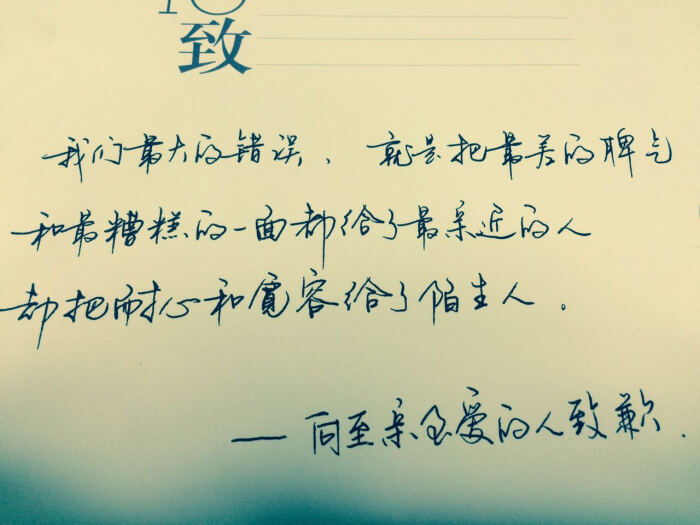 TO
致
我们最大的错误、就是把最差的脾气
和最糟糕的一面都给了最亲近的人
却把耐心和宽容给了陌生人。
——向至亲至爱的人致歉.